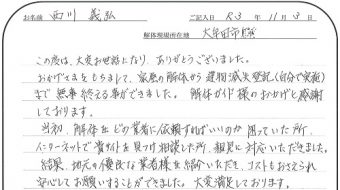 お名前 西川 義弘 ご記入日 R3 年 11月 3日
解体現場所在地 大牟田市
この度は、大変お世話になり、ありがとうございました。
おかげさまをもちまして、家屋の解体から建物滅失登記(自分で実施)
まで無事終える事ができました。解体ガイド様のおかげと感謝
しております。
当初、解体をどの業者に依頼すればいいのか困っていた所、
インターネットで貴サイトを見つけ相談した所、親身に対応いただきました。
結果、地元の優良な業者様を紹介いただき、コストもおさえられ
安心してお願いすることができました。大変満足しております。